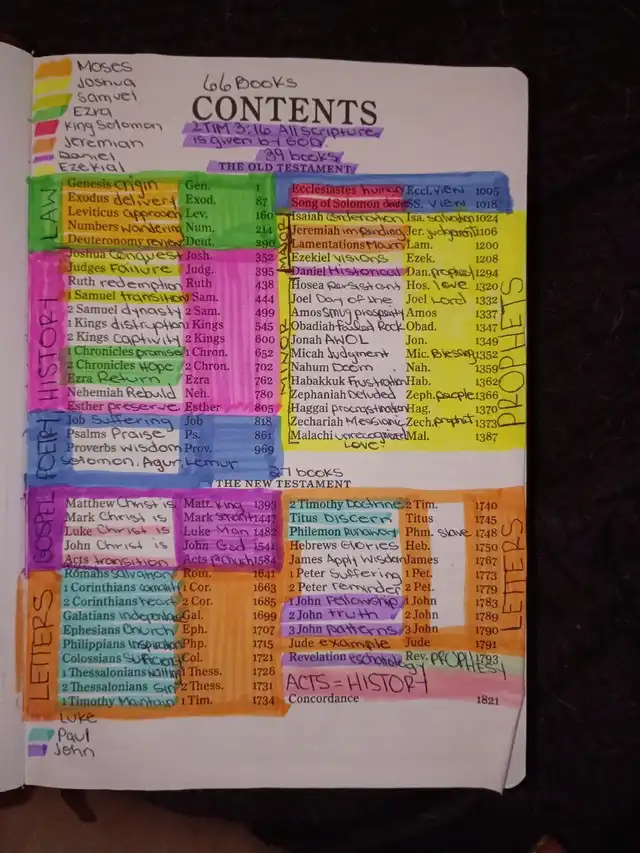 Moses
Joshua
Samuel
Ezra
King Solomon
Jeremian
Daniel
Ezekial
66 Books
CONTENTS
2 TIM 3:16 All scripture
is given by GOD.
39 books
THE OLD TESTAMENT
LAW
Genesis origin Gen. 1
Exodus delivery Exod. 87
Leviticus approach Lev. 160
Numbers wandering Num. 214
Deuteronomy review Deut. 290
HISTORY
Joshua Conquest Josh. 352
Judges Failure Judg. 395
Ruth redemption Ruth 438
1 Samuel transition Sam. 444
2 Samuel dynasty 2 Sam. 499
1 Kings distruption Kings 545
2 Kings captivity 2 Kings 600
1 Chronicles promise 1 Chron. 652
2 Chronicles Hope 2 Chron. 702
Ezra Return Ezra 762
Nehemiah Rebuild Neh. 780
Esther preserve Esther 805
POETRY
Job Suffering Job 818
Psalms Praise Ps. 861
Proverbs wisdom Prov. 969
Solomon, Agur, Lemur
Ecclesiastes human Eccl. view 1005
Song of Solomon SS. view 1018
MAJOR
Isaiah Isa. salvation 1024
Jeremiah impending Jer. judgment 1106
Lamentations Mourn Lam. 1200
Ezekiel visions Ezek. 1208
Daniel Historical Dan. prophet 1294
MINOR
Hosea Persistant Hos. love 1320
Joel Day of the Joel Lord 1332
Amos smug prosperity Amos 1337
Obadiah Rock Obad. 1347
Jonah AWOL Jon. 1349
Micah Judgment Mic. Blessing 1352
Nahum Doom Nah. 1359
Habakkuk Frustration Hab. 1362
Zephaniah Deluded Zeph. people 1366
Haggai procrastination Hag. 1370
Zechariah Messianic Zech. prophet 1373
Malachi unrecognized Mal. 1387
Love
PROPHETS
27 books
THE NEW TESTAMENT
GOSPEL
Matthew Christ is Matt. King 1393
Mark Christ is Mark 1447
Luke Christ is Luke Man 1482
John Christ is John God 1541
Acts transition Acts Church 1584
LETTERS
Romans salvation Rom. 1641
1 Corinthians 1 Cor. 1663
2 Corinthians heart 2 Cor. 1685
Galatians Gal. 1699
Ephesians Church Eph. 1707
Philippians Php. 1715
Colossians Col. 1721
1 Thessalonians 1 Thess. 1726
2 Thessalonians sin 2 Thess. 1731
1 Timothy Maintain 1 Tim. 1734
2 Timothy Doctrine 2 Tim. 1740
Titus Discern Titus 1745
Philemon Runaway Phm. slave 1748
Hebrews Glories Heb. 1750
James Apply wisdom James 1767
1 Peter Suffering 1 Pet. 1773
2 Peter reminder 2 Pet. 1779
1 John Fellowship 1 John 1783
2 John truth 2 John 1789
3 John patterns 3 John 1790
Jude example Jude 1791
Revelation eschatology Rev. PROPHESY 1793
LETTERS
ACTS = HISTORY
Concordance 1821
Luke
Paul
John